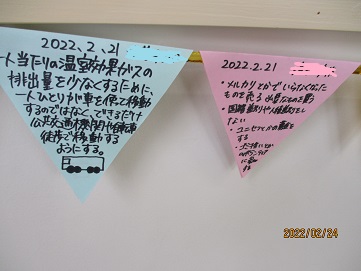 2022、2、21
一人当たりの温室効果ガスの
排出量を少なくするために、
一人ひとりが車を使って移動
するのではなく、できるだけ
公共交通機関や自転車
徒歩で移動する
ようにする。
2022.2.21
・メルカリとかでいらなくなった
ものを売る 必要なものを買う
・国籍差別や人種差別をし
ない
・ユニセフとかの募金を
する
2022/02/24